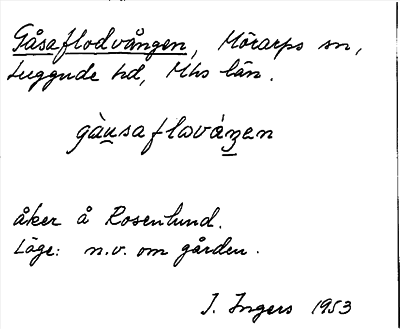 Gåsaflodvången, Mörarps sn,
Luggude hd, Mhs län.
gàusaflavàŋen
åker å Rosenlund.
Läge: n.v. om gården.
I. Ingers 1953